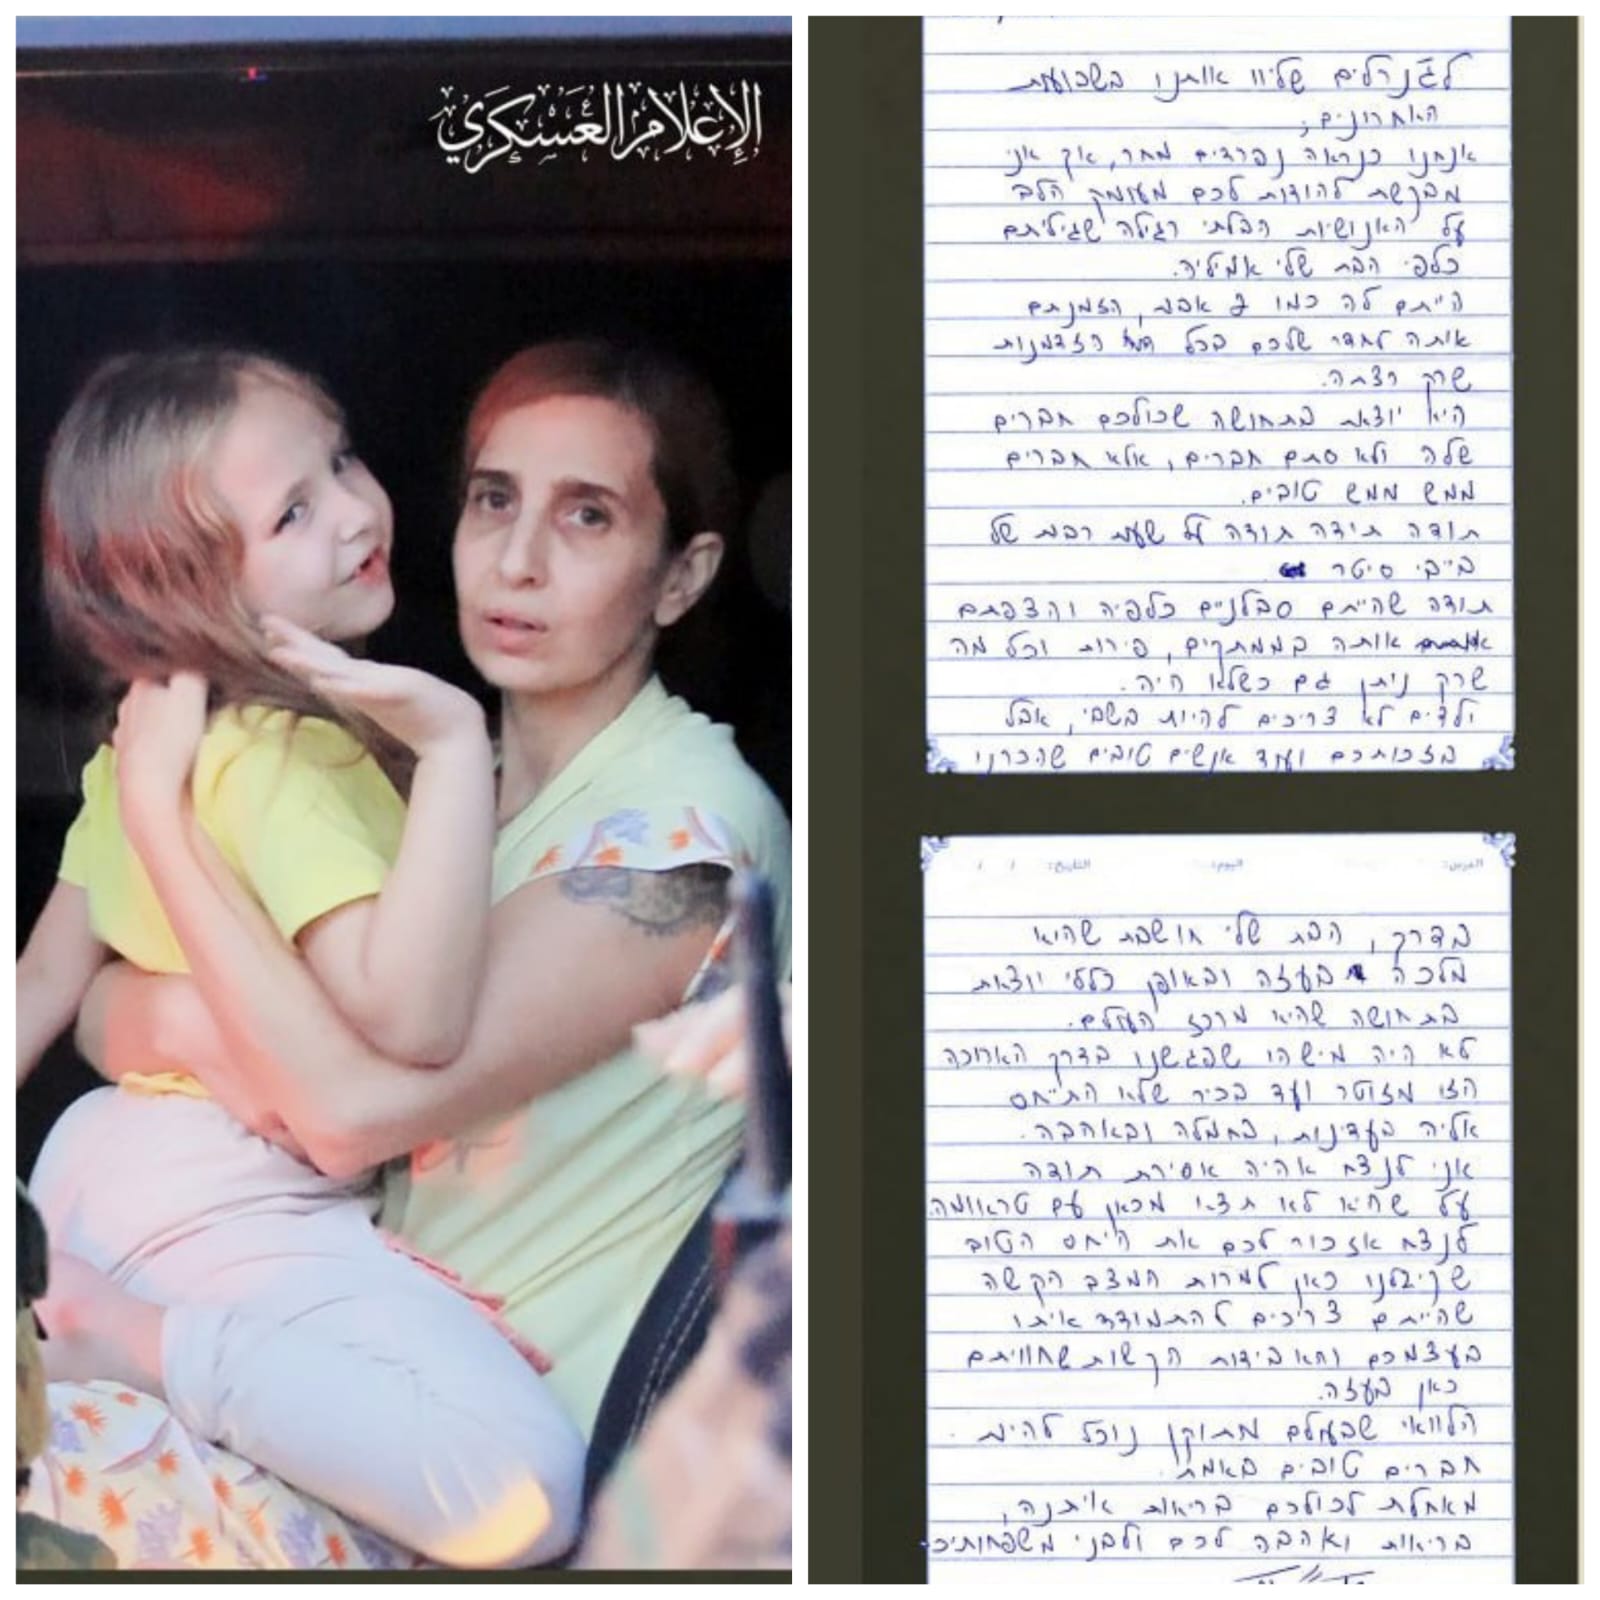 الإعلام العسكري
לגנרלים שליוו אותנו בשבועות
האחרונים;
אנחנו כנראה נפרדים מחר, אך אני
מבקשת להודות לכם מעומק הלב
על האנושיות הבלתי רגילה שגיליתם
כלפי הבת שלי אמיליה.
הייתם לה כמו אבות, הזמנתם
אותה לחדר שלכם בכל הזדמנות
שרק רצתה.
היא יוצאת בתחושה שכולכם חברים
שלה ולא סתם חברים, אלא חברים
ממש ממש טובים.
תודה תודה תודה על שעות רבות של
בייבי סיטר
תודה שהייתם סבלניים כלפיה והצפתם
אותה בממתקים, פירות וכל מה
שרק ניתן גם כשלא היה.
ילדים לא צריכים להיות בשבי, אבל
בזכותכם ועוד אנשים טובים שהכרנו
الدرس: اليوم: التاريخ: / /
בדרך, הבת שלי חושבת שהיא
מלכה בעזה ובאופן כללי יוצאת
בתחושה שהיא מרכז העולם.
לא היה מישהו שפגשנו בדרך הארוכה
הזו מזוטר ועד בכיר שלא התייחס
אליה בעדינות, בחמלה ובאהבה.
אני לנצח אהיה אסירת תודה
על שהיא לא תצא מכאן עם טראומה
לנצח אזכור לכם את היחס הטוב
שקיבלנו כאן למרות המצב הקשה
שהייתם צריכים להתמודד איתו
בעצמכם והאבידות הקשות שחוויתם
כאן בעזה.
הלוואי שבעולם מתוקן נוכל להיות
חברים טובים באמת.
מאחלת לכולכם בריאות איתנה,
בריאות ואהבה לכם ולבני משפחותיכ